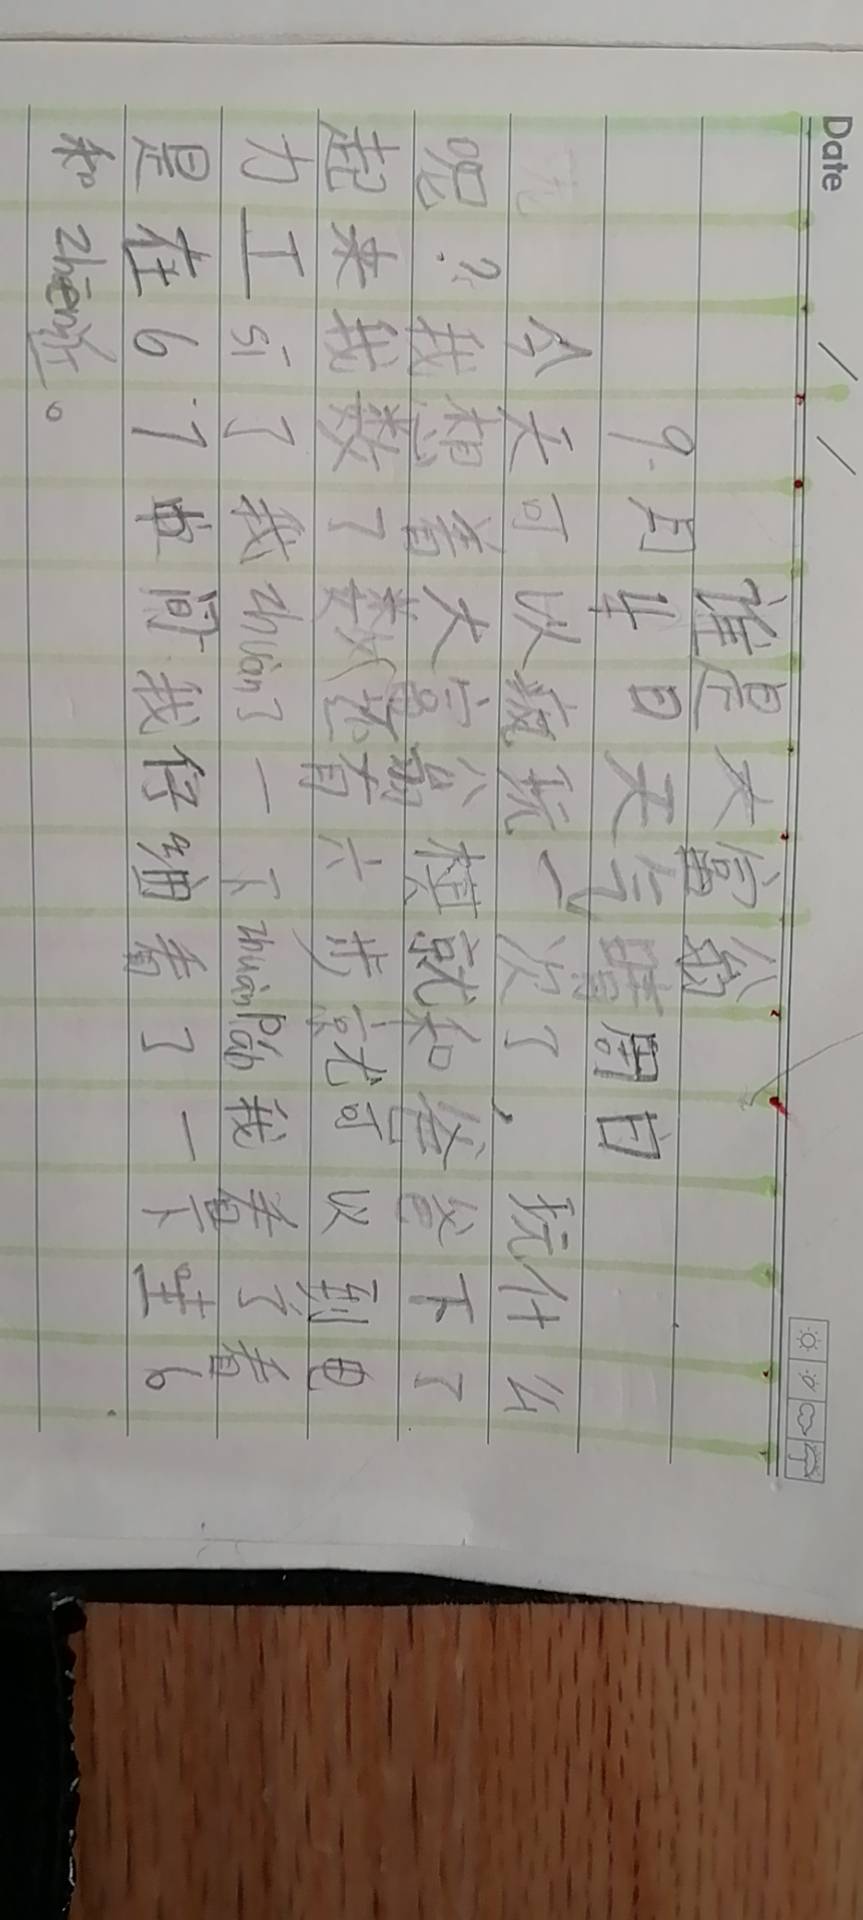 Date / /
谁是大富翁
9.月4日天气晴周日
今天可以疯玩一次了,玩什么
呢?我想着大富翁棋就和爸爸下了
起来我数了数还有六步就可以到电
力工sī了我zhuàn了一下zhuànPáo我看了看
是在6 7中间.我仔细看了一下 6
和